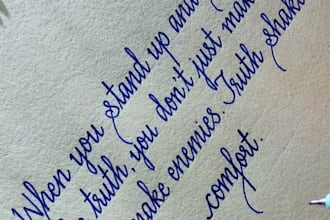 When you stand up and
truth, you don't just make
make enemies. Truth shake
comfort.